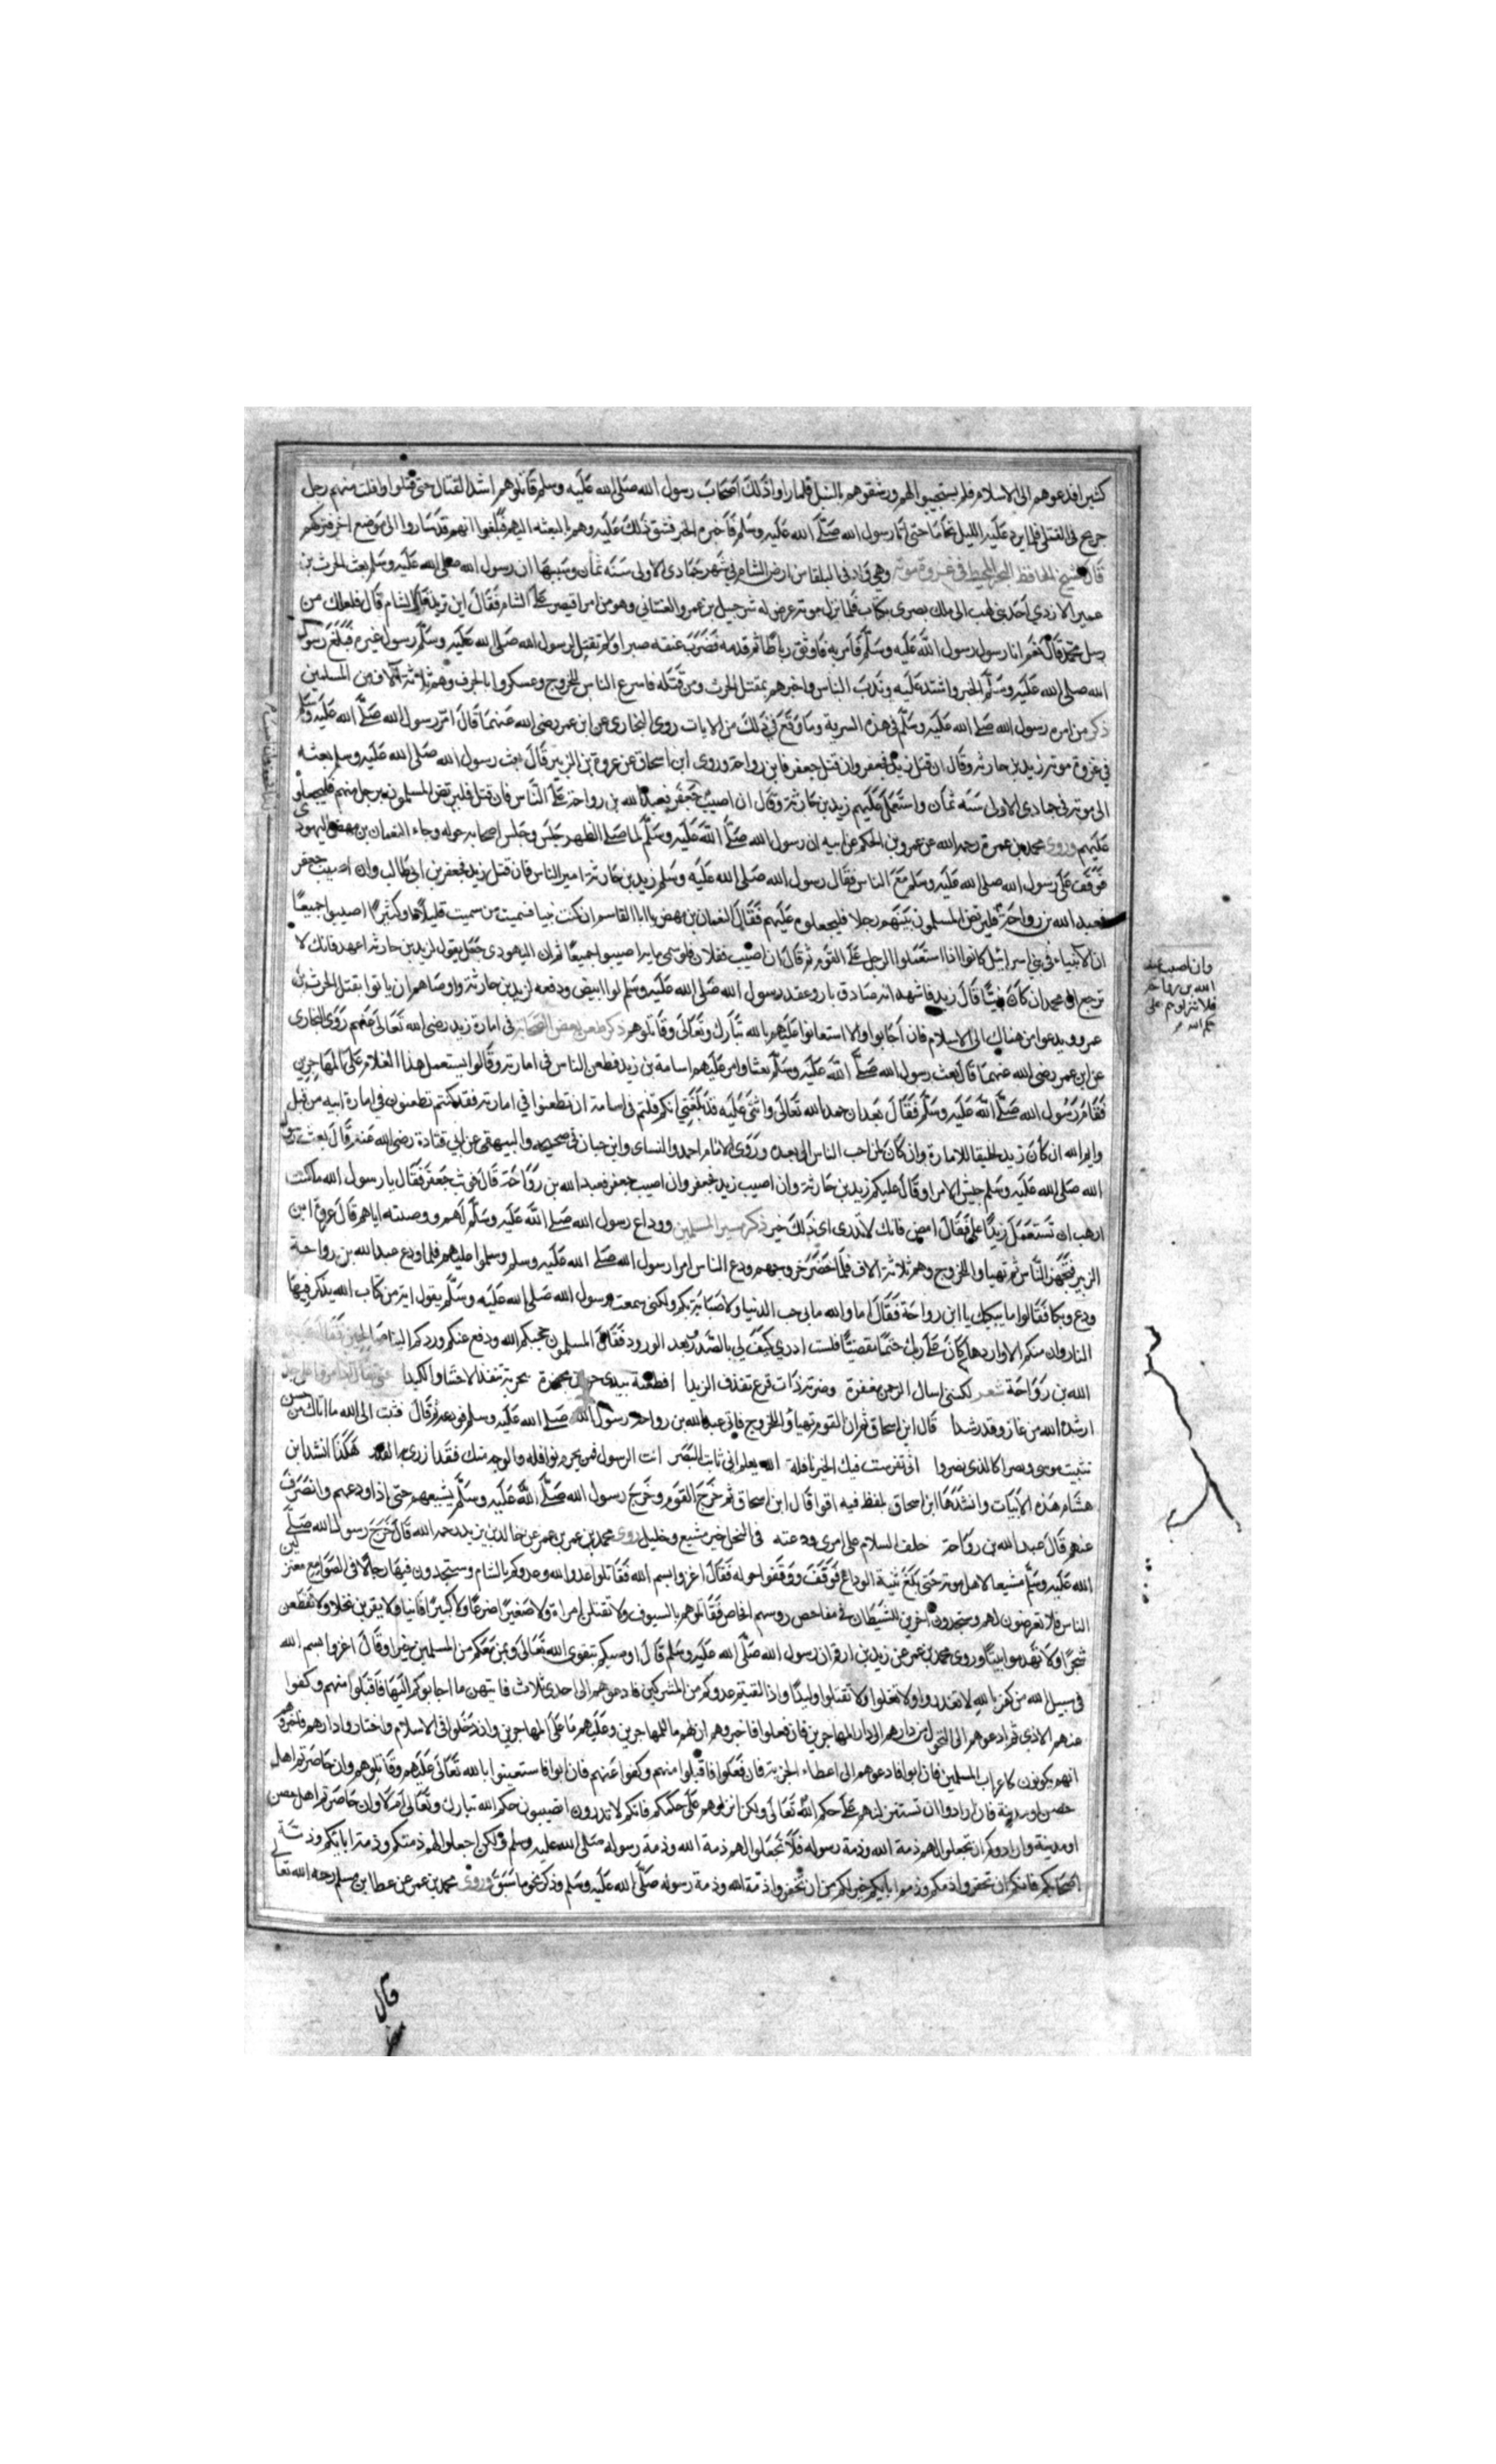 كثيرا فدعوهم الى الاسلام فلم يستجيبوا لهم ورشقوهم بالنبل فلما راو اذلك اصحاب رسول الله صلى الله عليه وسلم قاتلوهم اشد القتال حتى قتلوا وافلت منهم رجل
جريح في القتلى فلما برد عليه الليل تحامل حتى اتا رسول الله صلى الله عليه وسلم فاخبره الخبر فشق ذلك عليه وهم بالبعثه اليهم فبلغوا انهم قد ساروا الى موضع اخر فتركهم
قال شيخ الحافظ في غزوة موته وهي في ادنى البلقا من ارض الشام في شهر جمادى الاولى سنه ثمان وسببها ان رسول الله صلى الله عليه وسلم بعث الحرث بن
عمير الازدي احد بني لهب الى ملك بصرى بكتاب فلما نزل موته عرض له شرحبيل بن عمرو الغساني وهو من امرا قيصر على الشام فقال اين تريد قال الشام قال فلعلك من
رسل محمد قال نعم انا رسول رسول الله عليه وسلم فامر به فاوثق رباطا ثم قدمه فضرب عنقه صبرا ولم يقتل لرسول الله صلى الله عليه وسلم رسول غيره فبلغ رسول
الله صلى الله عليه وسلم الخبر واشتد عليه وندب الناس واخبرهم بمقتل الحرث ومن قتله فاسرع الناس للخروج وعسكروا بالجرف وهم ثلاثة آلاف من المسلمين
ذكر من امره رسول الله صلى الله عليه وسلم في هذه السرية وما وقع في ذلك من الايات روى البخاري عن ابن عمر رضى الله عنهما قال امر رسول الله صلى الله عليه وسلم
في غزوة موته زيد بن حارثه وقال ان قتل زيد فجعفر وان قتل جعفر فابن رواحة وروى ابن اسحاق عن عروة بن الزبير قال بعث رسول الله صلى الله عليه وسلم بعثه
الى موته في جمادى الاولى سنه ثمان واستعمل عليهم زيد بن حارثة وقال ان اصيب جعفر فعبد الله بن رواحة على الناس فان قتل فليرتض المسلمون برجل منهم فليجعلوه
عليهم وروى محمد بن عمر رحمه الله عن عمر بن الحكم عن ابيه ان رسول الله صلى الله عليه وسلم لما صلى الظهر جلس وجلس اصحابه حوله وجاء النعمان بن مهض اليهودي
فوقف على رسول الله صلى الله عليه وسلم مع الناس فقال رسول الله صلى الله عليه وسلم زيد بن حارثة امير الناس فان قتل زيد فجعفر بن ابي طالب وان اصيب جعفر
فعبد الله بن رواحة فليرتض المسلمون بينهم رجلا فليجعلوه عليهم فقال النعمان بن مهض يا ابا القاسم ان كنت نبيا فسميت من سميت قليلا او كثيرا اصيبوا جميعا
ان الانبياء في بني اسرائيل كانوا اذا استعملوا الرجل على القوم ثم قال ان اصيب ففلان فلو سمى مايه اصيبوا جميعا ثم ان اليهودي جعل يقول لزيد بن حارثه اعهد فانك لا
ترجع الى محمد ان كان نبيا قال زيد فاشهد انه صادق بار وعقد رسول الله صلى الله عليه وسلم لوا ابيض ودفعه لزيد بن حارثة واوصاهم ان ياتوا بقتل الحرث بن
عمر ويدعوا من هناك الى الاسلام فان اجابوا والا استعانوا عليهم بالله تبارك وتعالى وقاتلوهم ذكر طعن بعض الصحابه في امارة زيد رضى الله تعالى عنهم روى البخارى
عن ابن عمر رضى الله عنهما قال بعث رسول الله صلى الله عليه وسلم بعثا وامر عليهم اسامة بن زيد فطعن الناس في امارته وقالوا يستعمل هذا الغلام على المهاجرين
فقام رسول الله صلى الله عليه وسلم فقال بعد ان حمد الله تعالى واثنى عليه قد بلغني انكم قلتم في اسامة ان تطعنوا في امارته فقد كنتم تطعنون في امارة ابيه من قبل
وايم الله ان كان زيد لخليقا للامارة وان كان لمن احب الناس الى بعده وروى الامام احمد والنساى وابن حبان في صحيحه والبيهقي عن ابي قتادة رضى الله عنه قال بعث رسول
الله صلى الله عليه وسلم جيش الامرا وقال عليكم زيد بن حارثة وان اصيب زيد فجعفر وان اصيب جعفر فعبد الله بن رواحة قال فوثب جعفر فقال يا رسول الله ما كنت
ارهب ان تستعمل زيدا على فقال امض فانك لا تدرى اي ذلك خير ذكر مسير المسلمين ووداع رسول الله صلى الله عليه وسلم لهم ووصيته اياهم قال عروة بن
الزبير فتجهز الناس ثم تهيا وا للخروج وهم ثلاثة الاف فلما حضر خروجهم ودع الناس امرا رسول الله صلى الله عليه وسلم وسلموا عليهم فلما ودع عبد الله بن رواحة
ودع وبكا فقالوا ما يبكيك يا ابن رواحة فقال اما والله ما بي حب الدنيا ولا صبابة بكم ولكنى سمعت رسول الله صلى الله عليه وسلم يقول اية من كتاب الله يذكر فيها
النار وان منكم الا واردها كان على ربك حتما مقضيا فلست ادري كيف لي بالصدر بعد الورود فقال المسلمون صحبكم الله ودفع عنكم وردكم الينا صالحين فقال عبد
الله بن رواحة شعر لكنني اسال الرحمن مغفرة وضربة ذات قرع تقذف الزبدا او طعنة بيدى حران مجهزة بحربة تنفذ الاحشا والكبدا حتى يقال اذا مروا على جدثى
ارشد الله من غاز وقد رشدا قال ابن اسحاق ثم ان القوم تهيأوا للخروج فاتى عبد الله بن رواحة رسول الله صلى الله عليه وسلم فودعه ثم قال فثبت الله ما اتاك من حسن
تثبيت موسى ونصرا كالذى نصروا انى تفرست فيك الخير نافلة الله يعلم انى ثابت البصر انت الرسول فمن يحرم نوافله والوجه منك فقد ازرى به القدر هكذا انشد ابن
هشام هذه الابيات وانشدها ابن اسحاق بلفظ فيه اقوا قال ابن اسحاق ثم خرج القوم وخرج رسول الله صلى الله عليه وسلم يشيعهم حتى اذا ودعهم وانصرف
عنهم قال عبد الله بن رواحة خلف السلام على امرئ ودعته في النخل خير مشيع وخليل روى محمد بن عمر عن خالد بن يزيد رحمه الله قال خرج رسول الله صلى
الله عليه وسلم مشيعا لاهل موته حتى بلغ ثنية الوداع فوقف ووقفوا حوله فقال اغزوا بسم الله فقاتلوا عدوا لله وعدوكم بالشام وستجدون فيها رجالا في الصوامع معتزلين
الناس فلا تعرضون لهم وتجدون اخرين للشيطان في مفاحص روسهم فقاتلوهم بالسيوف ولا تقتلن امراة ولا صغيرا ضرعا ولا كبيرا فانيا ولا يقربن نخلا ولا تقطعن
شجرا ولا تهدموا بيتا وروى محمد بن عمر عن زيد بن ارقم ان رسول الله صلى الله عليه وسلم قال اوصيكم بتقوى الله تعالى وبمن معكم من المسلمين خيرا وقال اغزوا بسم الله
في سبيل الله من كفر بالله لا تغدروا ولا تغلوا ولا تقتلوا وليدا واذا لقيتم عدوكم من المشركين فادعوهم الى احدى ثلاث فايتهن ما اجابوكم اليها فاقبلوا منهم وكفوا
عنهم الاذى ثم ادعوهم الى التحول من دارهم الى دار المهاجرين فان فعلوا فاخبروهم ان لهم ما للمهاجرين وعليهم ما على المهاجرين وان دخلوا في الاسلام واختاروا دارهم فاخبروهم
انهم يكونون كاعراب المسلمين فان ابوا فادعوهم الى اعطاء الجزية فان فعلوا فاقبلوا منهم وكفوا عنهم فان ابوا فاستعينوا بالله تعالى عليهم وقاتلوهم وان حاصرتم اهل
حصن او مدينة فان ارادوا ان تستنزلوهم على حكم الله تعالى ولكن انزلوهم على حكمكم فانكم لا تدرون اتصيبون حكم الله تبارك وتعالى ام لا وان حاصرتم اهل حصن
او مدينة وارادوكم ان تجعلوا لهم ذمة الله وذمة رسوله فلا تجعلوا لهم ذمة الله وذمة رسوله صلى الله عليه وسلم ولكن اجعلوا لهم ذمتكم وذمة ابائكم وذمة
اصحابكم فانكم ان تخفروا ذمتكم وذمم ابائكم خير لكم من ان تخفروا ذمة الله وذمة رسوله صلى الله عليه وسلم وذكر نحو ما سبق وروى محمد بن عمر عن عطا بن مسلم رحمه الله تعالى
وان اصيب عبد
الله بن رواحة
قال